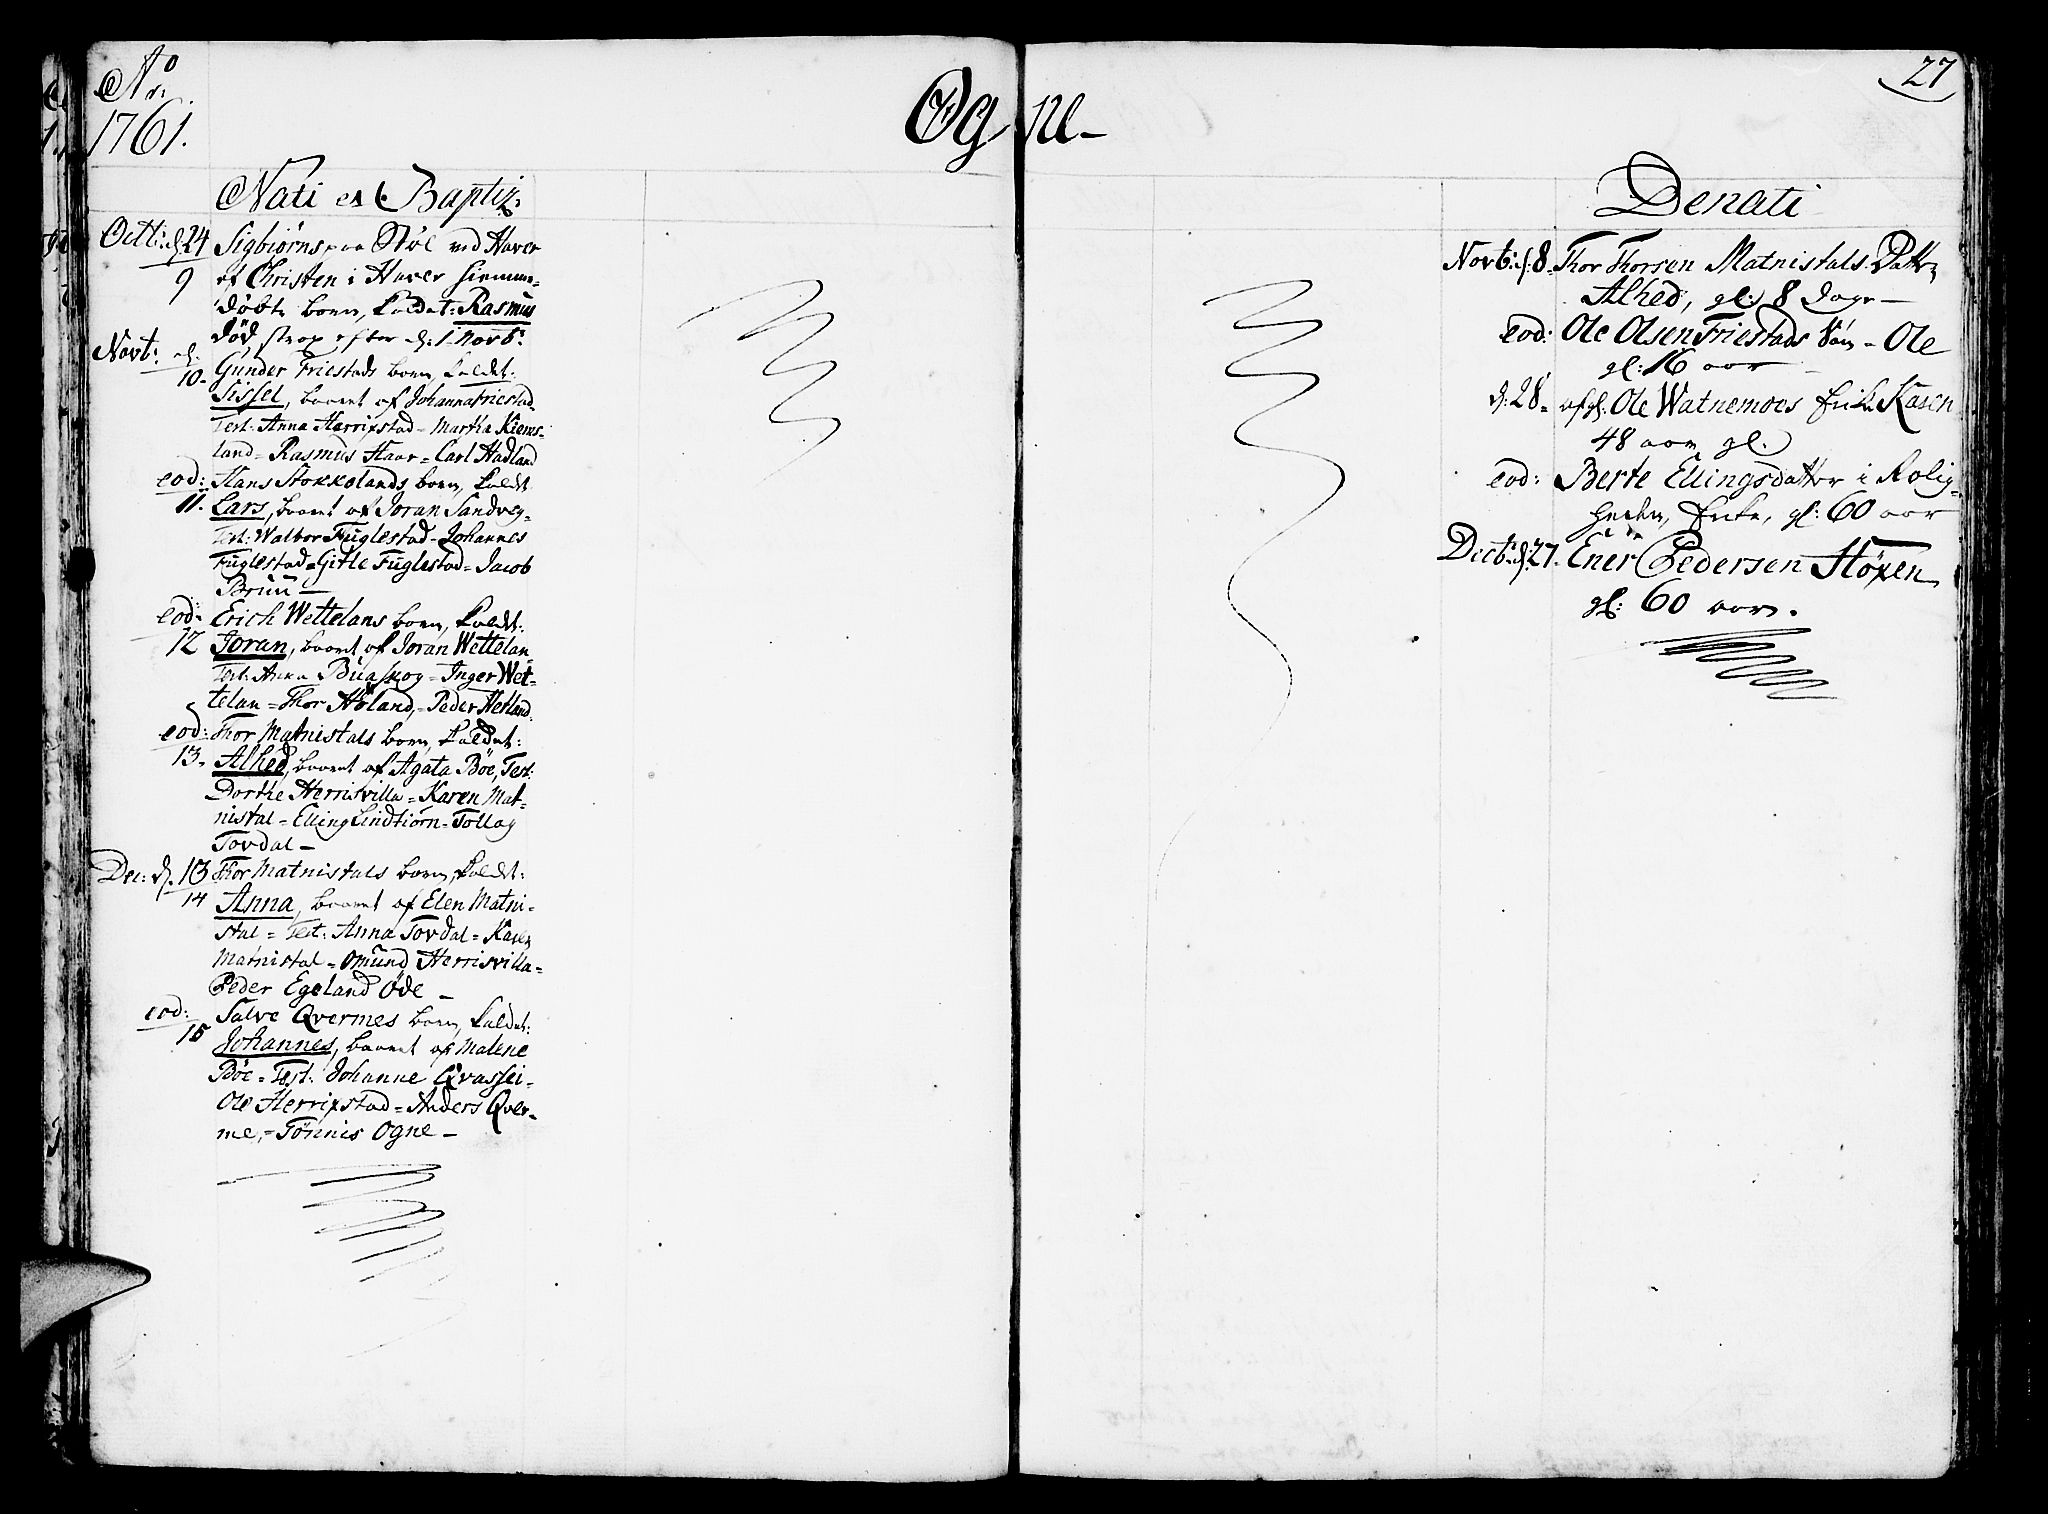 Aº
1761.
Ogne
27
Nati et Baptiz:
Octb: d. 24 Sigbiørns paa Støl ved Haver
9 af Christen i Haver hiemme-
døbte barn, kaldet: Rasmus
død strax efter d: 1 Novb:
Novb: d.
10. Gunder Friestads barn, kaldet:
Sissel, baaret af Johanna Friestad
Test: Anna Herrigstad - Martha Kiems-
land = Rasmus Haar = Carl Hadland
eod: Hans Stokkolands barn, kaldet
11. Lars, baaret af Joran Sandvey-
Test: Walbor Fuglestad - Johannes
Fuglestad = Gitle Fuglestad = Jacob
Bruu -
eod: Erich Wettelans barn, kaldet:
12 Joran, baaret af Joran Wettelan
Test: Anna Buaskog = Inger Wet-
telan = Thor Høland, = Peder Hetland
eod: Thor Matnistals barn, kaldet:
13. Alhed, baaret af Agata Bøe, Test:
Dorthe Herrisvilla = Karen Mat-
nistal = Elling Lindtiørn = Tollag
Tovdal -
Dec: d. 13 Thor Matnistals barn, kaldet:
14 Anna, baaret af Elen Matni-
stal = Test: Anna Tovdal = Karen
Matnistal = Omund Herrisvilla =
Peder Egeland Øde -
eod: Salve Qvermes barn, kaldet:
15 Johannes, baaret af Malene
Bøe = Test: Johanne Qvassei-
Ole Herrigstad = Anders Qver-
me, = Tönnis Ogne -
Denati
Novb: d. 8. Thor Thorsen Matnistals Datter
Alhed, gl: 8 dage -
eod: Ole Olsen Friestads Søn - Ole
gl: 16 aar -
d. 28. afg: Ole Watnemoes Enke Karen
48 aar gl.
eod: Berte Ellingsdatter i Rolig-
heden, Enke, gl: 60 aar
Decb: d. 27. Ener Pedersen Støxen
gl: 60 aar.